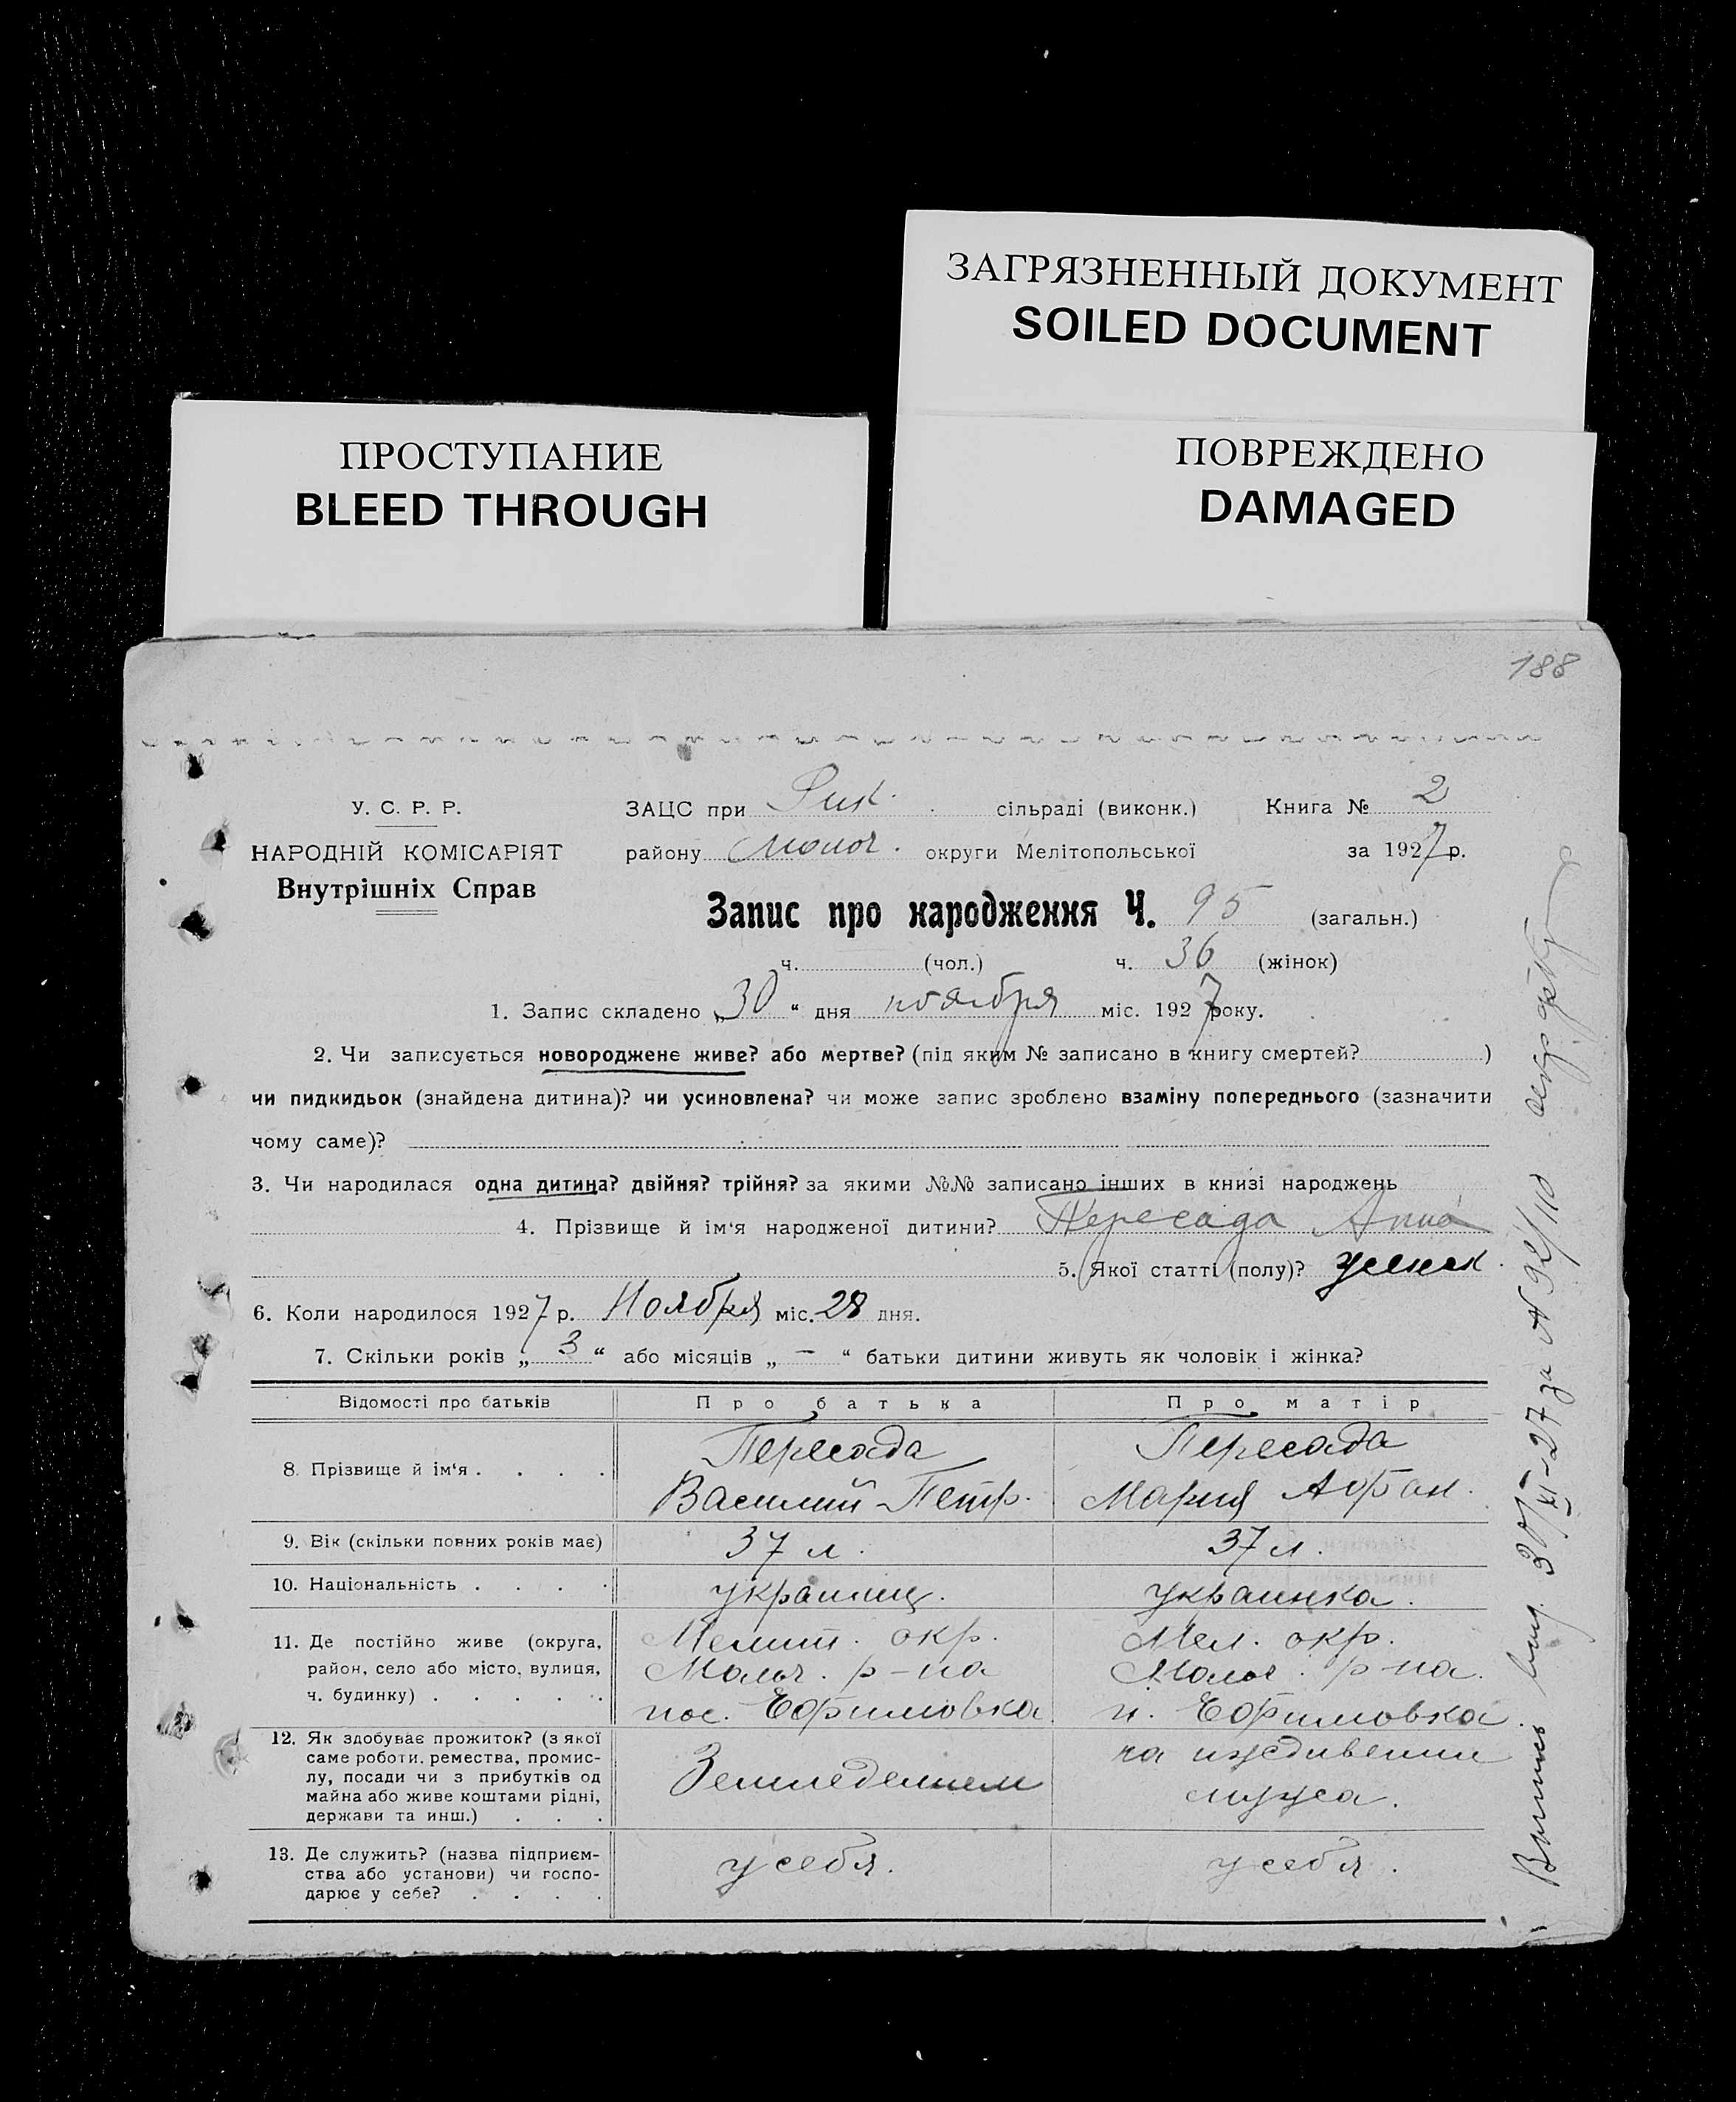 ЗАГРЯЗНЕННЫЙ ДОКУМЕНТ
SOILED DOCUMENT
ПРОСТУПАНИЕ
BLEED THROUGH
ПОВРЕЖДЕНО
DAMAGED
188
У. С. Р. Р.
НАРОДНІЙ КОМІСАРІЯТ
Внутрішніх Справ
ЗАЦС при сільраді (виконк.) Книга № 2
району Молоч. округи Мелітопольської за 1927 р.
Запис про народження Ч. 95 (загальн.)
ч. (чол.) ч. 36 (жінок)
1. Запис складено „30“ дня ноября міс. 1927 року.
2. Чи записується новороджене живе? або мертве? (під яким № записано в книгу смертей? )
чи пидкидьок (знайдена дитина)? чи усиновлена? чи може запис зроблено взаміну попереднього (зазначити
чому саме)?
3. Чи народилася одна дитина? двійня? трійня? за якими №№ записано інших в книзі народжень
4. Прізвище й ім‘я народженої дитини? Пересада Анна
5. Якої статті (полу)? женск.
6. Коли народилося 1927 р. Ноября міс. 28 дня.
7. Скільки років „ 3 “ або місяців „ – “ батьки дитини живуть як чоловік і жінка?
Відомості про батьків Про батька Про матір
8. Прізвище й ім‘я . . . . Пересада Василий Петр. Пересада Мария Афан.
9. Вік (скільки повних років має) 37 л. 37 л.
10. Національність . . . . украинц. украинка.
11. Де постійно живе (округа, Мелит. окр. Мел. окр.
район, село або місто, вулиця, Молоч. р-на Молоч. р-на.
ч. будинку) . . . . . пос. Ефимовка п. Ефимовка.
12. Як здобуває прожиток? (з якої на иждивении
саме роботи, ремества, промис-
лу, посади чи з прибутків од Земледелием мужа.
майна або живе коштами рідні,
держави та инш.) . . .
13. Де служить? (назва підприєм-
ства або установи) чи госпо- у себя. у себя.
дарює у себе? . . . .
Выпись выд. 30/XI-27 за №